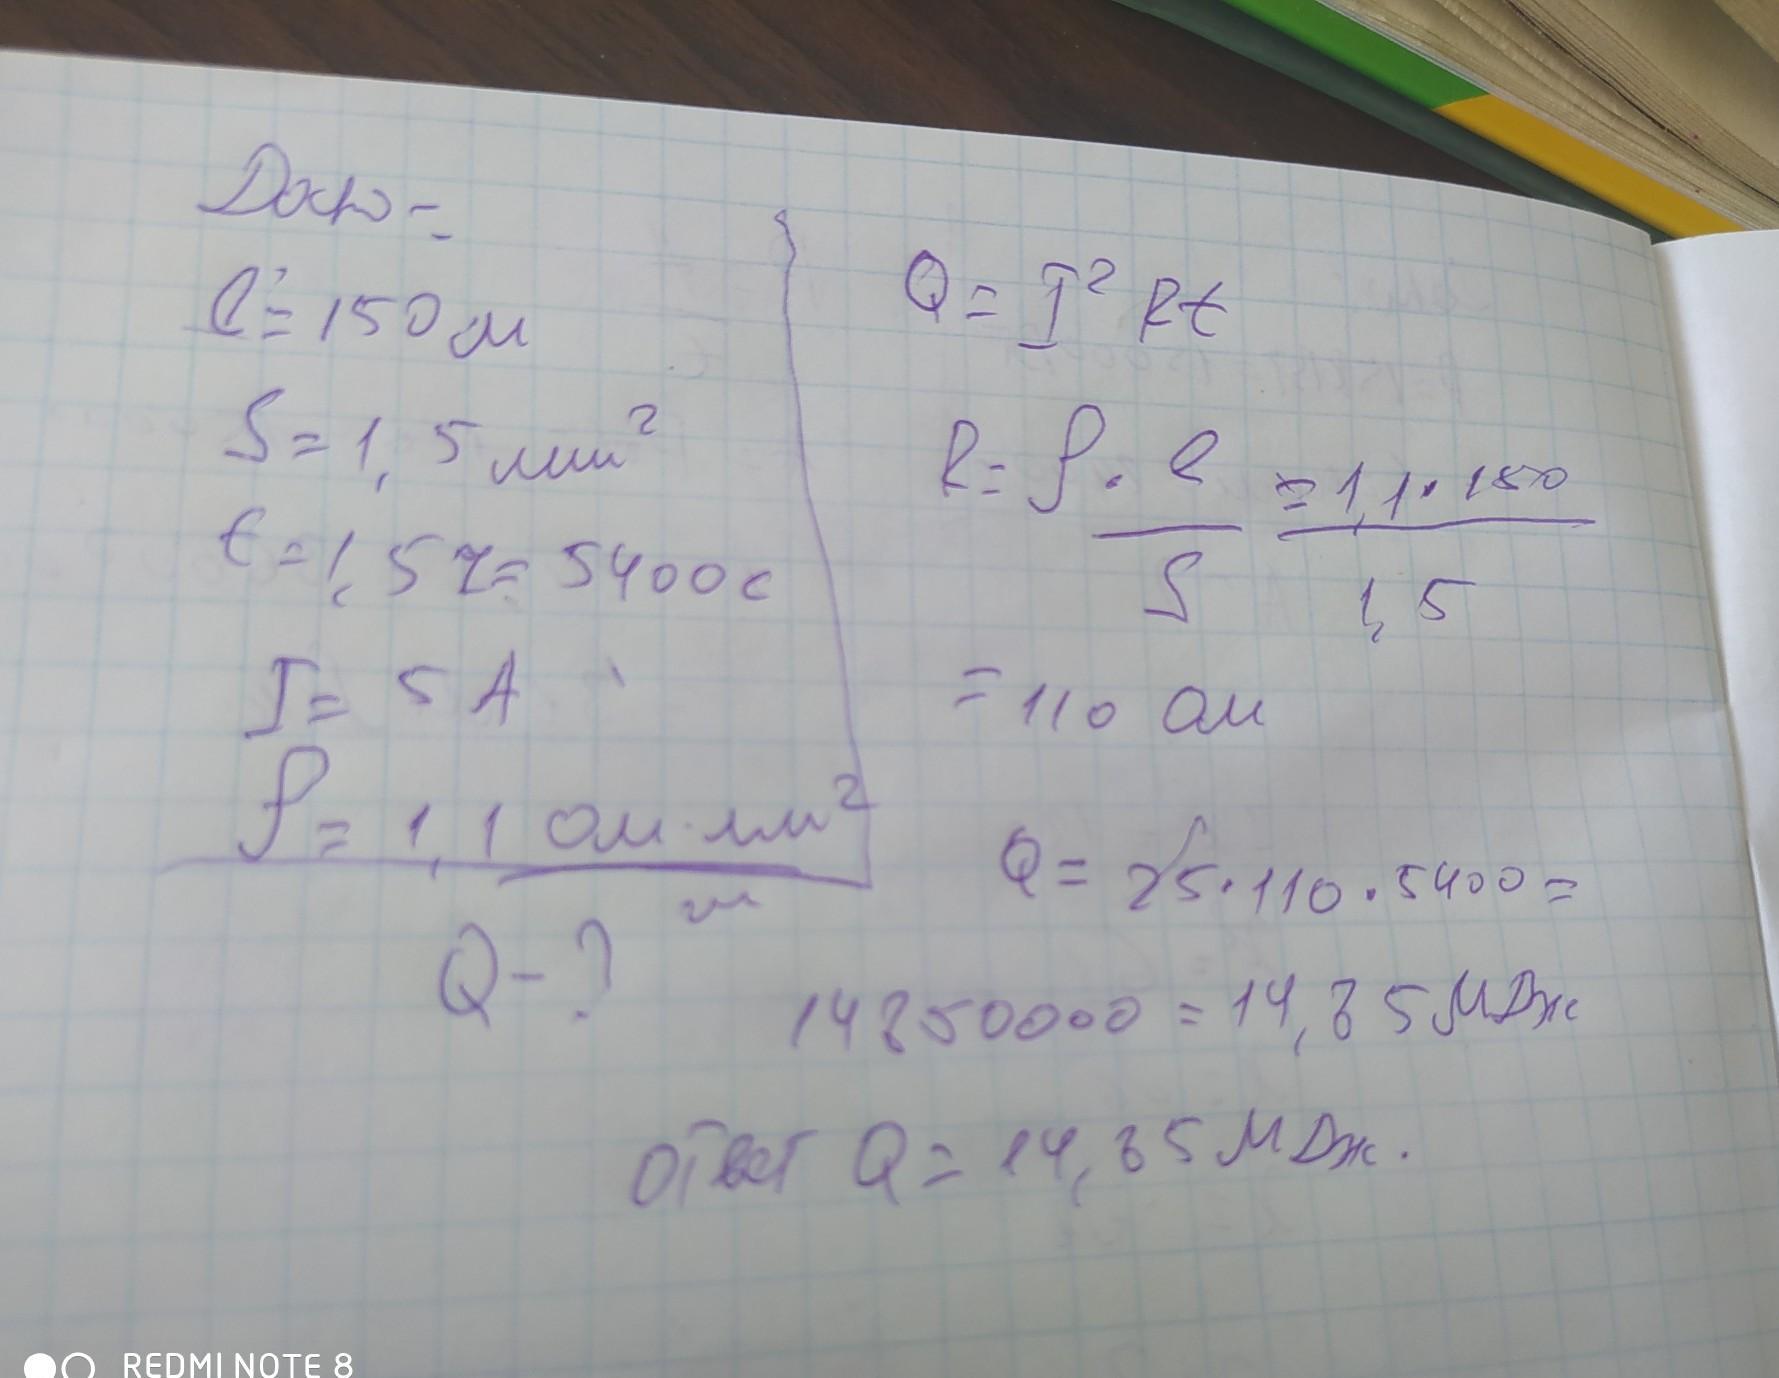 Дано=
l=150м
S=1,5 мм²
t=1,5ч=5400с
I=5А
ρ=1,1 Ом·мм²
м
Q-?
Q=I²Rt
R=ρ·l =1,1·150
S 1,5
=110 Ом
Q=25·110·5400=
14850000=14,85МДж
ответ Q=14,85МДж.
REDMI NOTE 8